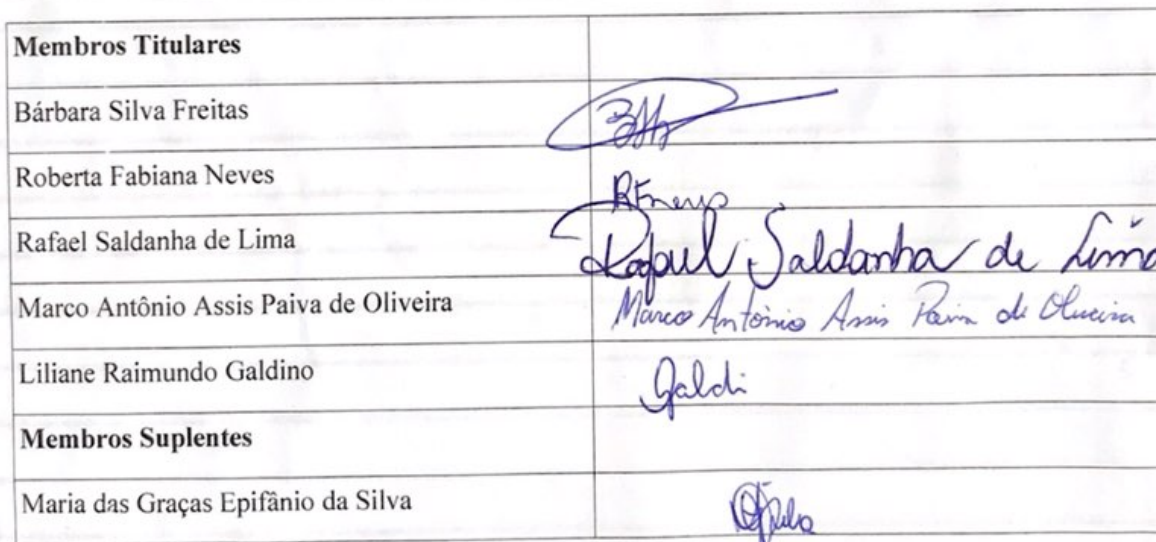 Membros Titulares
Bárbara Silva Freitas
Roberta Fabiana Neves
RFneves
Rafael Saldanha de Lima
Rafael Saldanha de Lima
Marco Antônio Assis Paiva de Oliveira
Marco Antônio Assis Paiva de Oliveira
Liliane Raimundo Galdino
Galdi
Membros Suplentes
Maria das Graças Epifânio da Silva